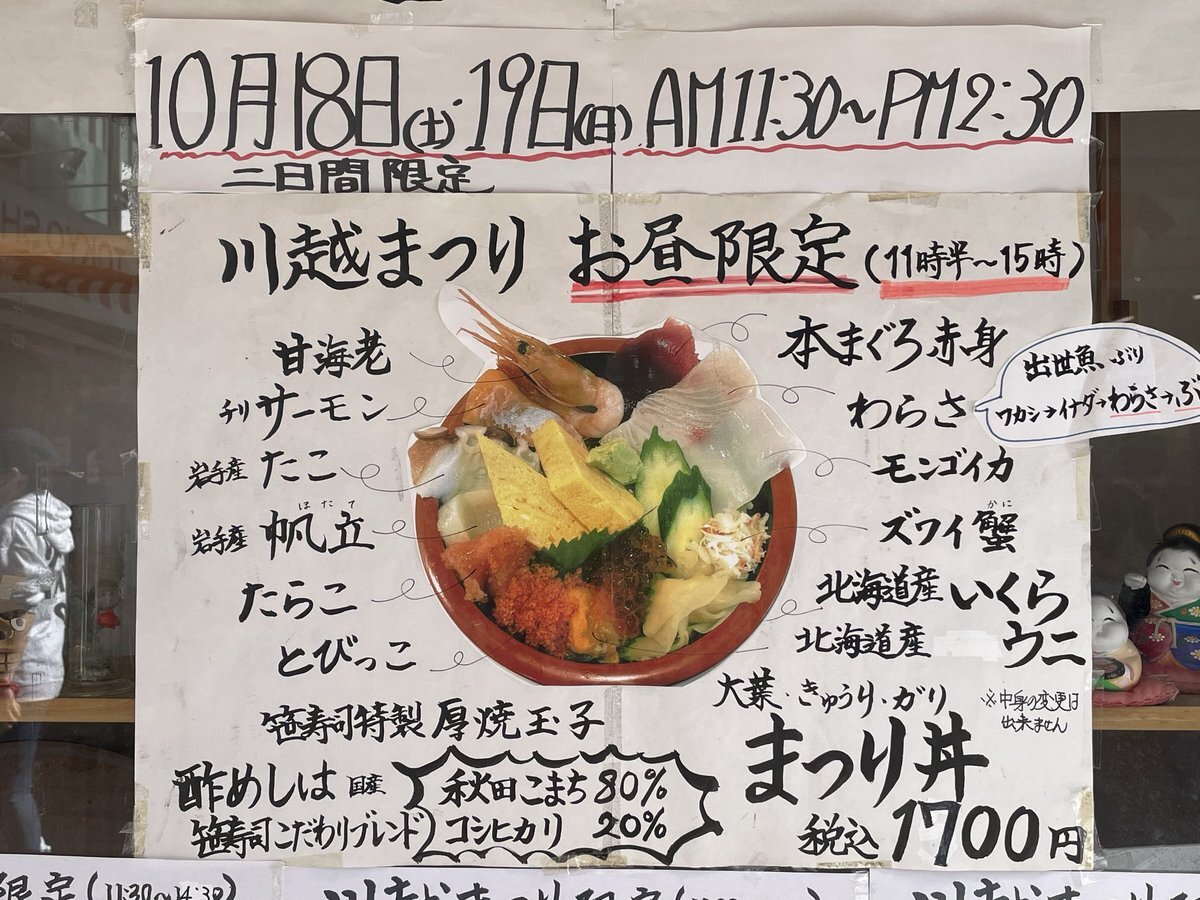 10月18日(土)・19日(日) AM11:30～PM2:30
二日間限定
川越まつり お昼限定(11時半～15時)
甘海老
チリサーモン
岩手産 たこ
ほたて
岩手産 帆立
たらこ
とびっこ
本まぐろ赤身
わらさ
出世魚 ぶり
ワカシ→イナダ→わらさ→ぶ
モンゴイカ
かに
ズワイ蟹
北海道産 いくら
北海道産 ウニ
大葉・きゅうり・ガリ
※中身の変更は
出来ません
笹寿司特製 厚焼玉子
まつり丼
税込 1700円
酢めしは 国産 秋田こまち 80%
笹寿司こだわりブレンド) コシヒカリ 20%
限定(11:30～14:30)